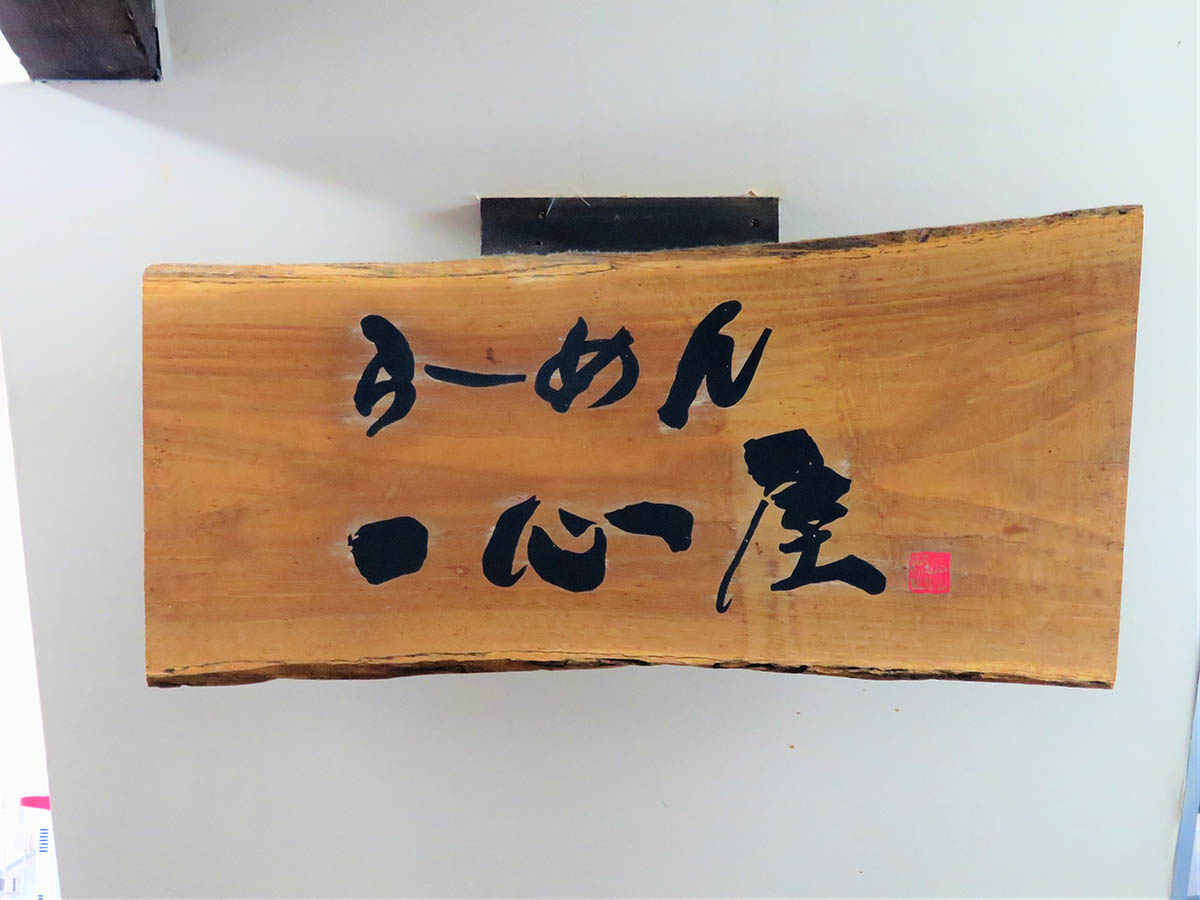 らーめん
一心屋